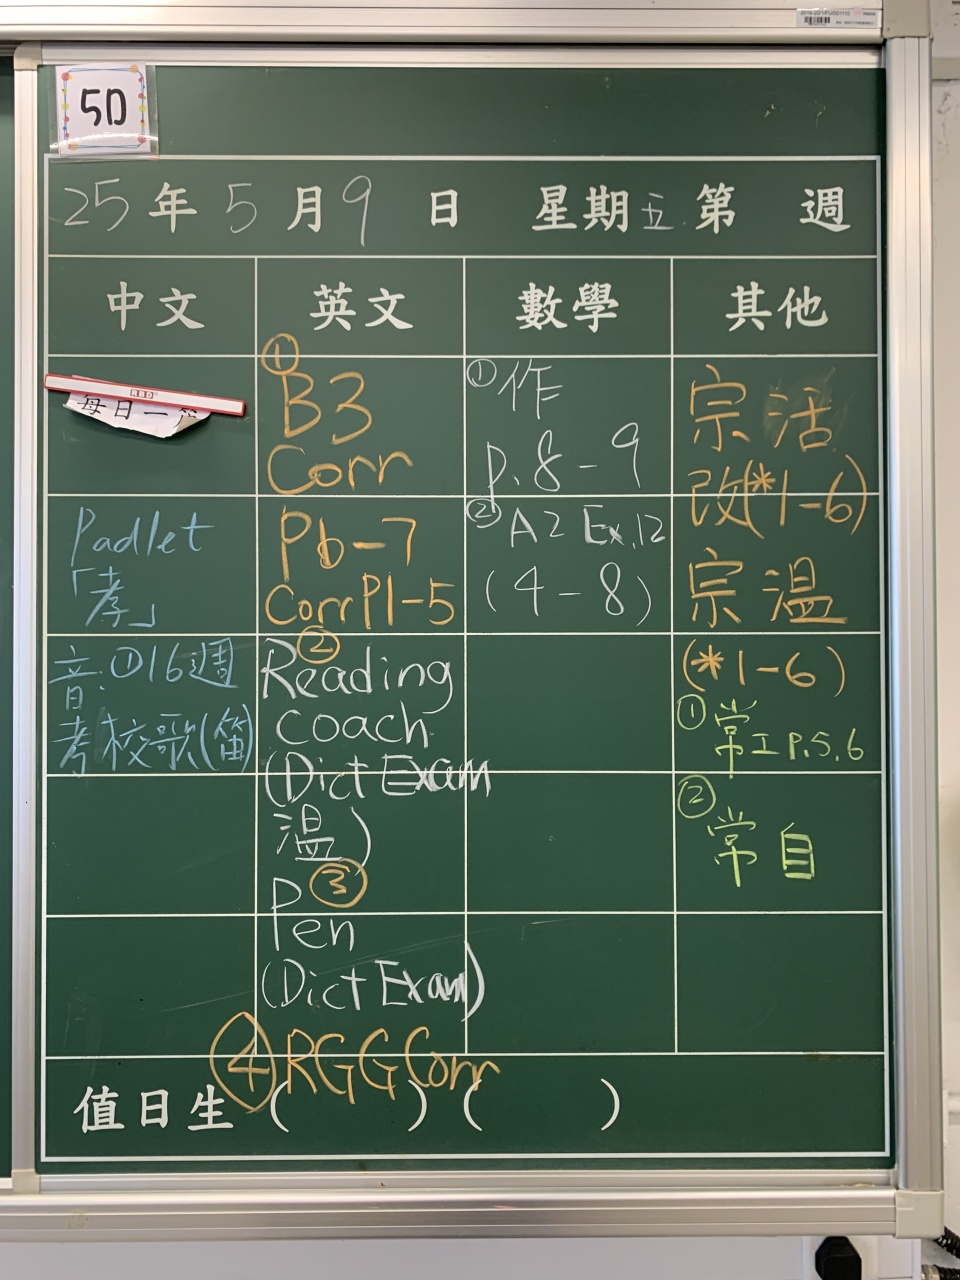 5D
25年5月9日 星期五 第 週
中文 英文 數學 其他
RBD
每日一
Padlet
「孝」
音:①16週
考校歌(笛)
①
B3
Corr
Pb-7
Corr P1-5
②
Reading
coach
(Dict Exam
溫)
③
Pen
(Dict Exam)
④ RGG Corr
① 作
p.8-9
② A2 Ex.12
(4-8)
宗活
改(*1-6)
宗溫
(*1-6)
① 常工P.5,6
② 常自
值日生 ( ) ( )